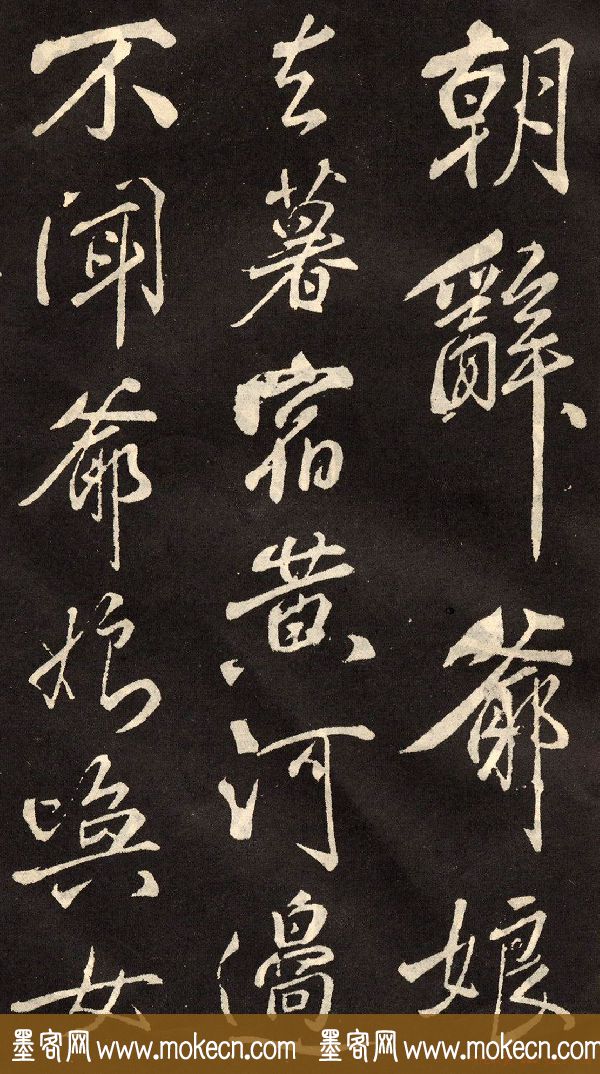 朝辭爺娘
去暮宿黄河邊
不聞爺娘喚女
墨客网 www.mokecn.com 墨客网 www.mokecn.com